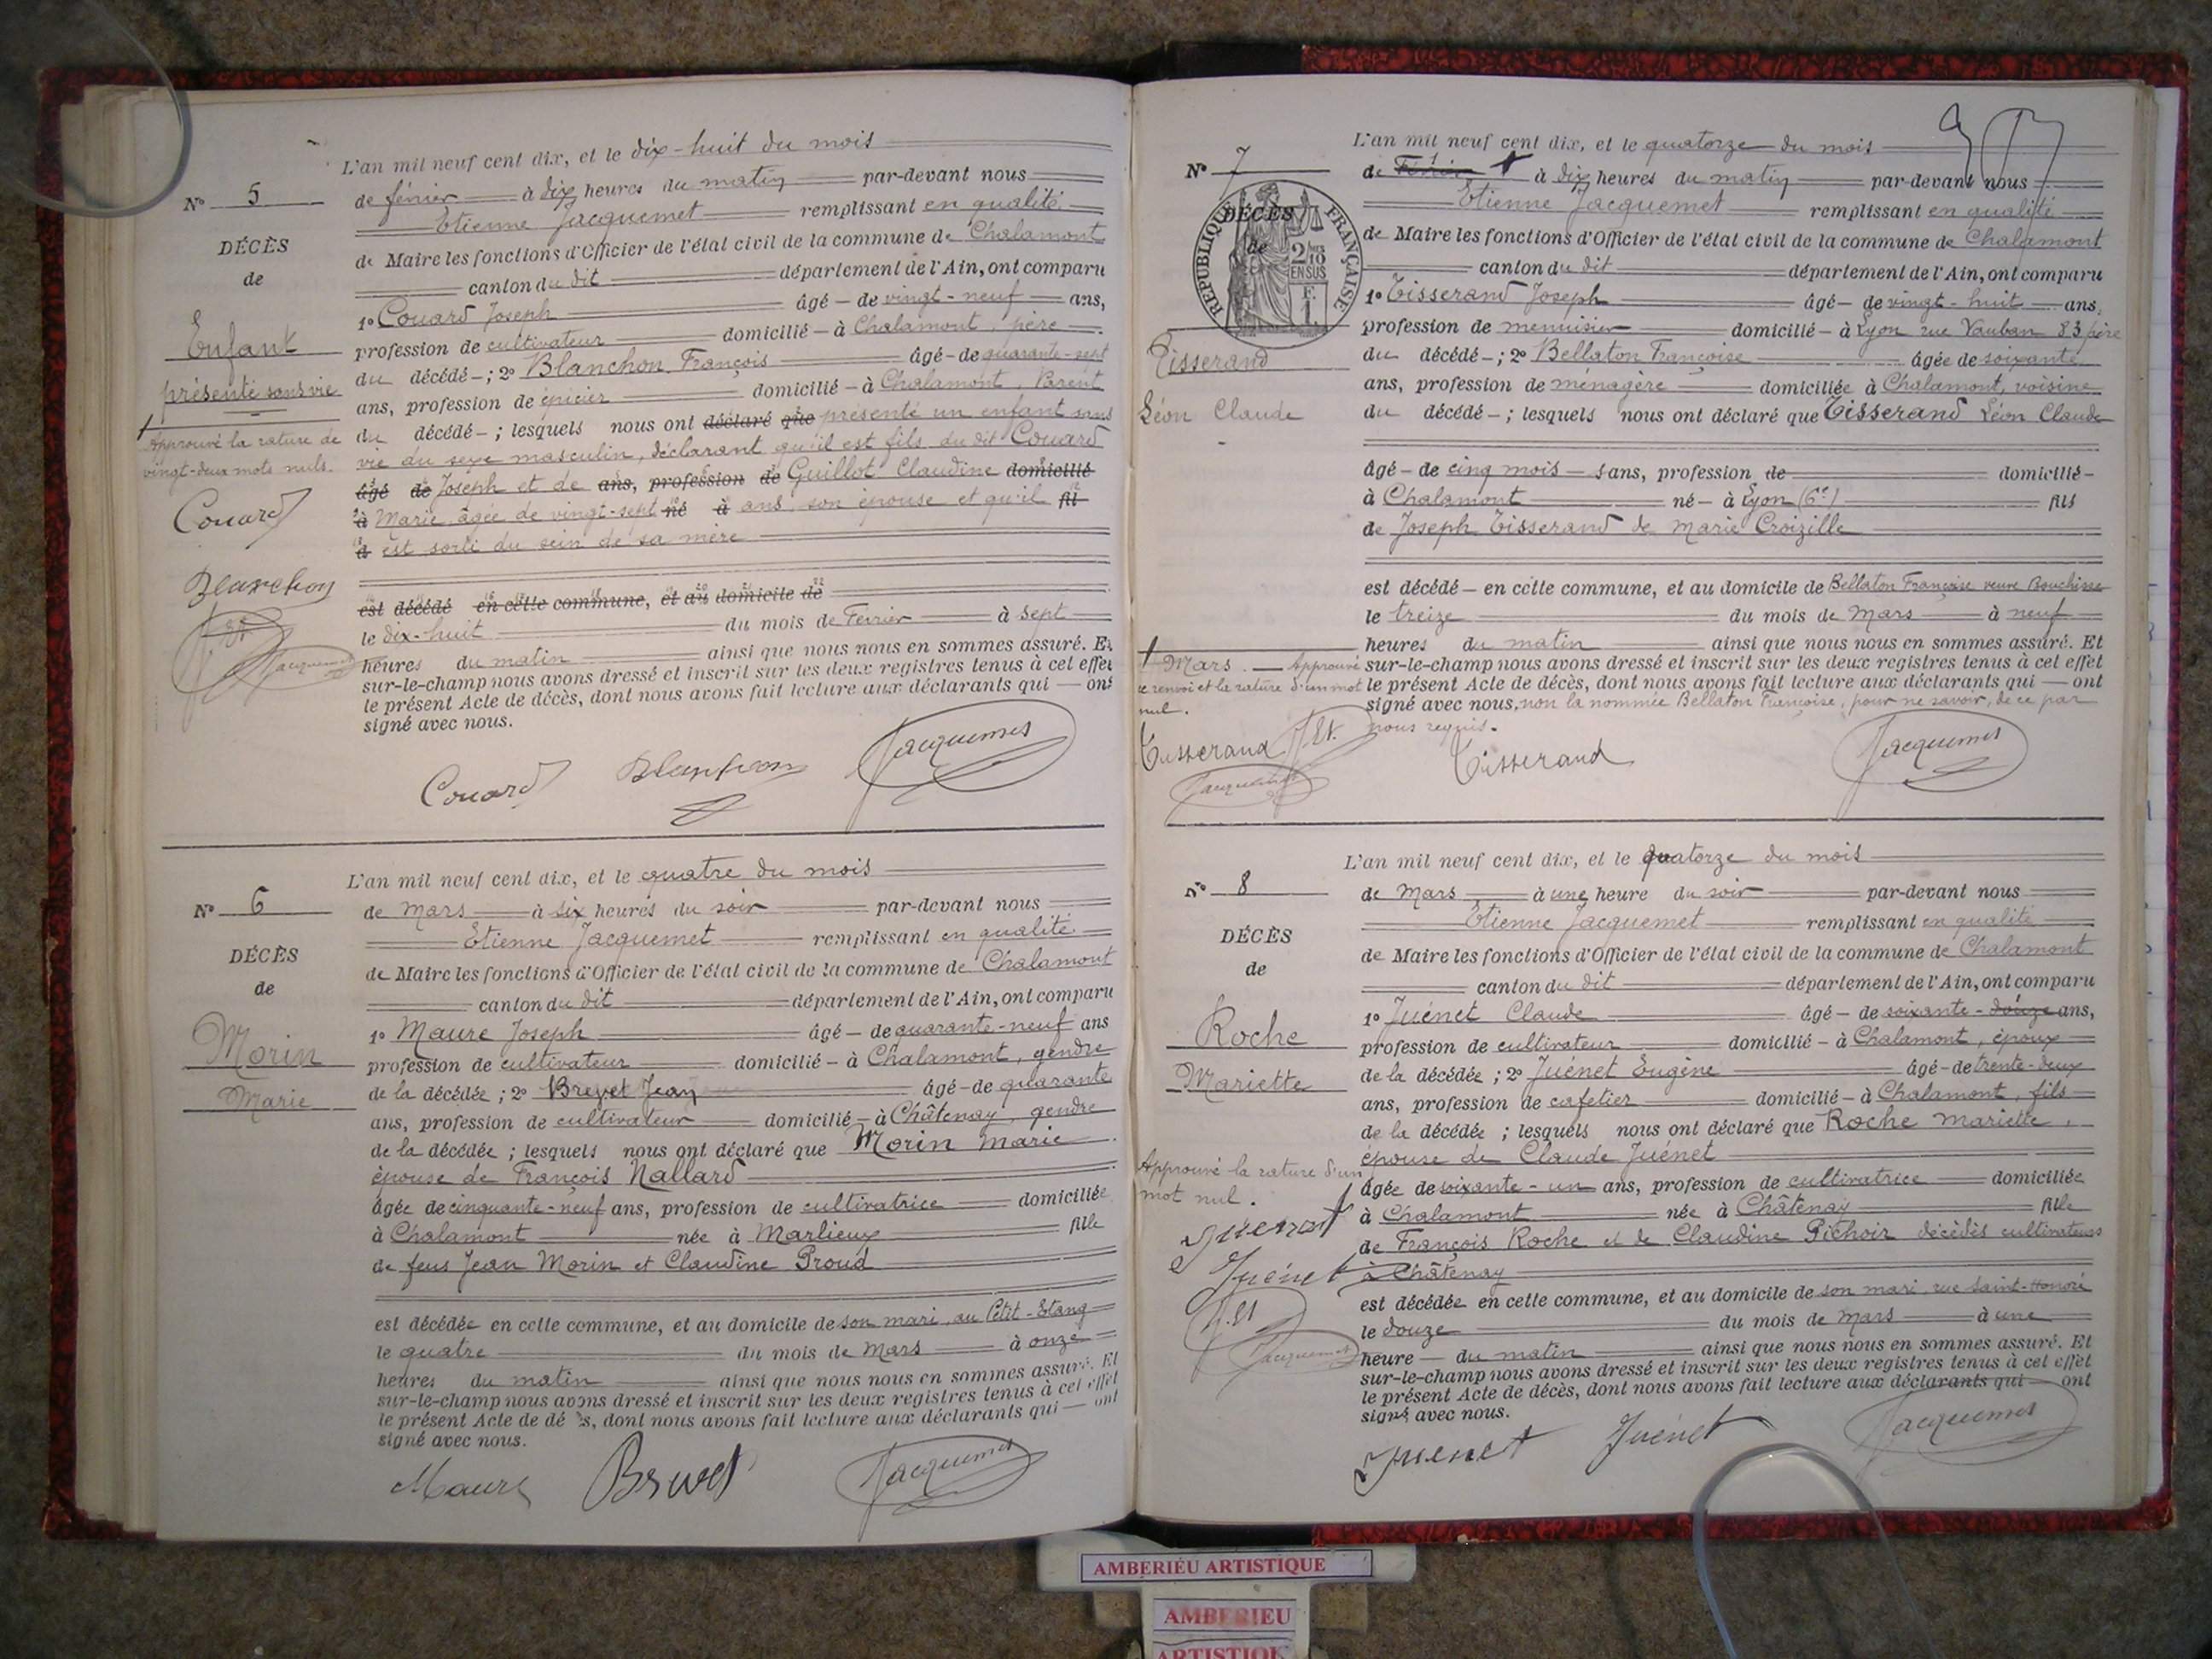 L'an mil neuf cent dix, et le dix-huit du mois
N° 5
de février à dix heures du matin par-devant nous
Etienne Jacquemet remplissant en qualité
DÉCÈS
de Maire les fonctions d'Officier de l'état civil de la commune de Chalamont
de
canton du dit département de l'Ain, ont comparu
1° Couard Joseph âgé de vingt-neuf ans,
Enfant
profession de cultivateur domicilié à Chalamont, père
présenté sans vie
du décédé ; 2° Blanchon François âgé de quarante-sept
ans, profession de épicier domicilié à Chalamont, Parent
Approuvé la rature de
vingt-deux mots nuls.
du décédé ; lesquels nous ont déclaré que présenté un enfant sans
vie du sexe masculin, déclarant qu'il est fils du dit Couard
âgé de Joseph et de ans, profession de Guillot Claudine domicilié
Couard
à Marie, âgée de vingt-sept né à ans, son épouse et qu'il fil
à est sorti du sein de sa mère
Blanchon
est décédé en cette commune, et au domicile de
le dix-huit du mois de Février à sept
Jacquemet
heures du matin ainsi que nous nous en sommes assuré. Et
sur-le-champ nous avons dressé et inscrit sur les deux registres tenus à cet effet
le présent Acte de décès, dont nous avons fait lecture aux déclarants qui ont
signé avec nous.
Couard Blanchon Jacquemet
L'an mil neuf cent dix, et le quatre du mois
N° 6
de Mars à six heures du soir par-devant nous
Etienne Jacquemet remplissant en qualité
DÉCÈS
de Maire les fonctions d'Officier de l'état civil de la commune de Chalamont
de
canton du dit département de l'Ain, ont comparu
1° Maure Joseph âgé de quarante-neuf ans
Morin
profession de cultivateur domicilié à Chalamont, gendre
Marie
de la décédée ; 2° Brevet Jean âgé de quarante
ans, profession de cultivateur domicilié à Châtenay, gendre
de la décédée ; lesquels nous ont déclaré que Morin Marie
épouse de François Nallard
âgée de cinquante-neuf ans, profession de cultivatrice domiciliée
à Chalamont née à Marlieux fille
de feus Jean Morin et Claudine Proud
est décédée en cette commune, et au domicile de son mari, au Petit-Etang
le quatre du mois de Mars à onze
heures du matin ainsi que nous nous en sommes assuré. Et
sur-le-champ nous avons dressé et inscrit sur les deux registres tenus à cet effet
le présent Acte de décès, dont nous avons fait lecture aux déclarants qui ont
signé avec nous.
Maure Brevet Jacquemet
L'an mil neuf cent dix, et le quatorze du mois
N° 7
de Février à dix heures du matin par-devant nous
Etienne Jacquemet remplissant en qualité
DÉCÈS
de
RÉPUBLIQUE FRANÇAISE
2/10 EN SUS
F. 1.
de Maire les fonctions d'Officier de l'état civil de la commune de Chalamont
canton du dit département de l'Ain, ont comparu
1° Tisserand Joseph âgé de vingt-huit ans,
profession de menuisier domicilié à Lyon rue Vauban 83, père
Tisserand
du décédé ; 2° Bellaton Françoise âgée de soixante
ans, profession de ménagère domiciliée à Chalamont, voisine
Léon Claude
du décédé ; lesquels nous ont déclaré que Tisserand Léon Claude
âgé de cinq mois sans, profession de domicilié
à Chalamont né à Lyon (6e) fils
de Joseph Tisserand de Marie Croizille
est décédé en cette commune, et au domicile de Bellaton Françoise veuve
le treize du mois de Mars à neuf
heures du matin ainsi que nous nous en sommes assuré. Et
Mars. Approuvé
sur-le-champ nous avons dressé et inscrit sur les deux registres tenus à cet effet
ce renvoi et la rature d'un mot
le présent Acte de décès, dont nous avons fait lecture aux déclarants qui ont
nul.
signé avec nous, non la nommée Bellaton Françoise, pour ne savoir, de ce par
nous requis.
Tisserand
Jacquemet
Tisserand Jacquemet
L'an mil neuf cent dix, et le quatorze du mois
N° 8
de Mars à une heure du soir par-devant nous
Etienne Jacquemet remplissant en qualité
DÉCÈS
de Maire les fonctions d'Officier de l'état civil de la commune de Chalamont
de
canton du dit département de l'Ain, ont comparu
1° Juénet Claude âgé de soixante-douze ans,
Roche
profession de cultivateur domicilié à Chalamont, époux
Mariette
de la décédée ; 2° Juénet Eugène âgé de trente-deux
ans, profession de cafetier domicilié à Chalamont, fils
de la décédée ; lesquels nous ont déclaré que Roche Mariette,
épouse de Claude Juénet
Approuvé la rature d'un
mot nul.
âgée de soixante-un ans, profession de cultivatrice domiciliée
à Chalamont née à Châtenay fille
Juenet
de François Roche et de Claudine Pichoir décédés cultivateurs
Juénet
à Châtenay
est décédée en cette commune, et au domicile de son mari, rue Saint-Honoré
le douze du mois de Mars à une
Jacquemet
heure du matin ainsi que nous nous en sommes assuré. Et
sur-le-champ nous avons dressé et inscrit sur les deux registres tenus à cet effet
le présent Acte de décès, dont nous avons fait lecture aux déclarants qui ont
signé avec nous.
Juenet Juénet Jacquemet
AMBERIEU ARTISTIQUE
AMBERIEU